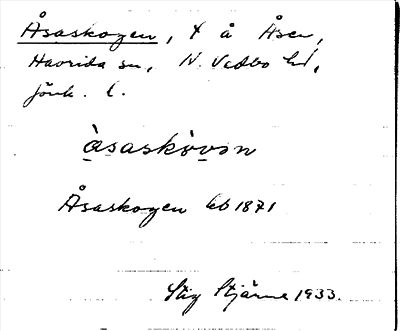 Åsaskogen, t å Åsen,
Haurida sn, N. Vedbo hd,
Jönk. l.
àsaskòvən
Åsaskogen kb 1871
Stig Stjärne 1933.